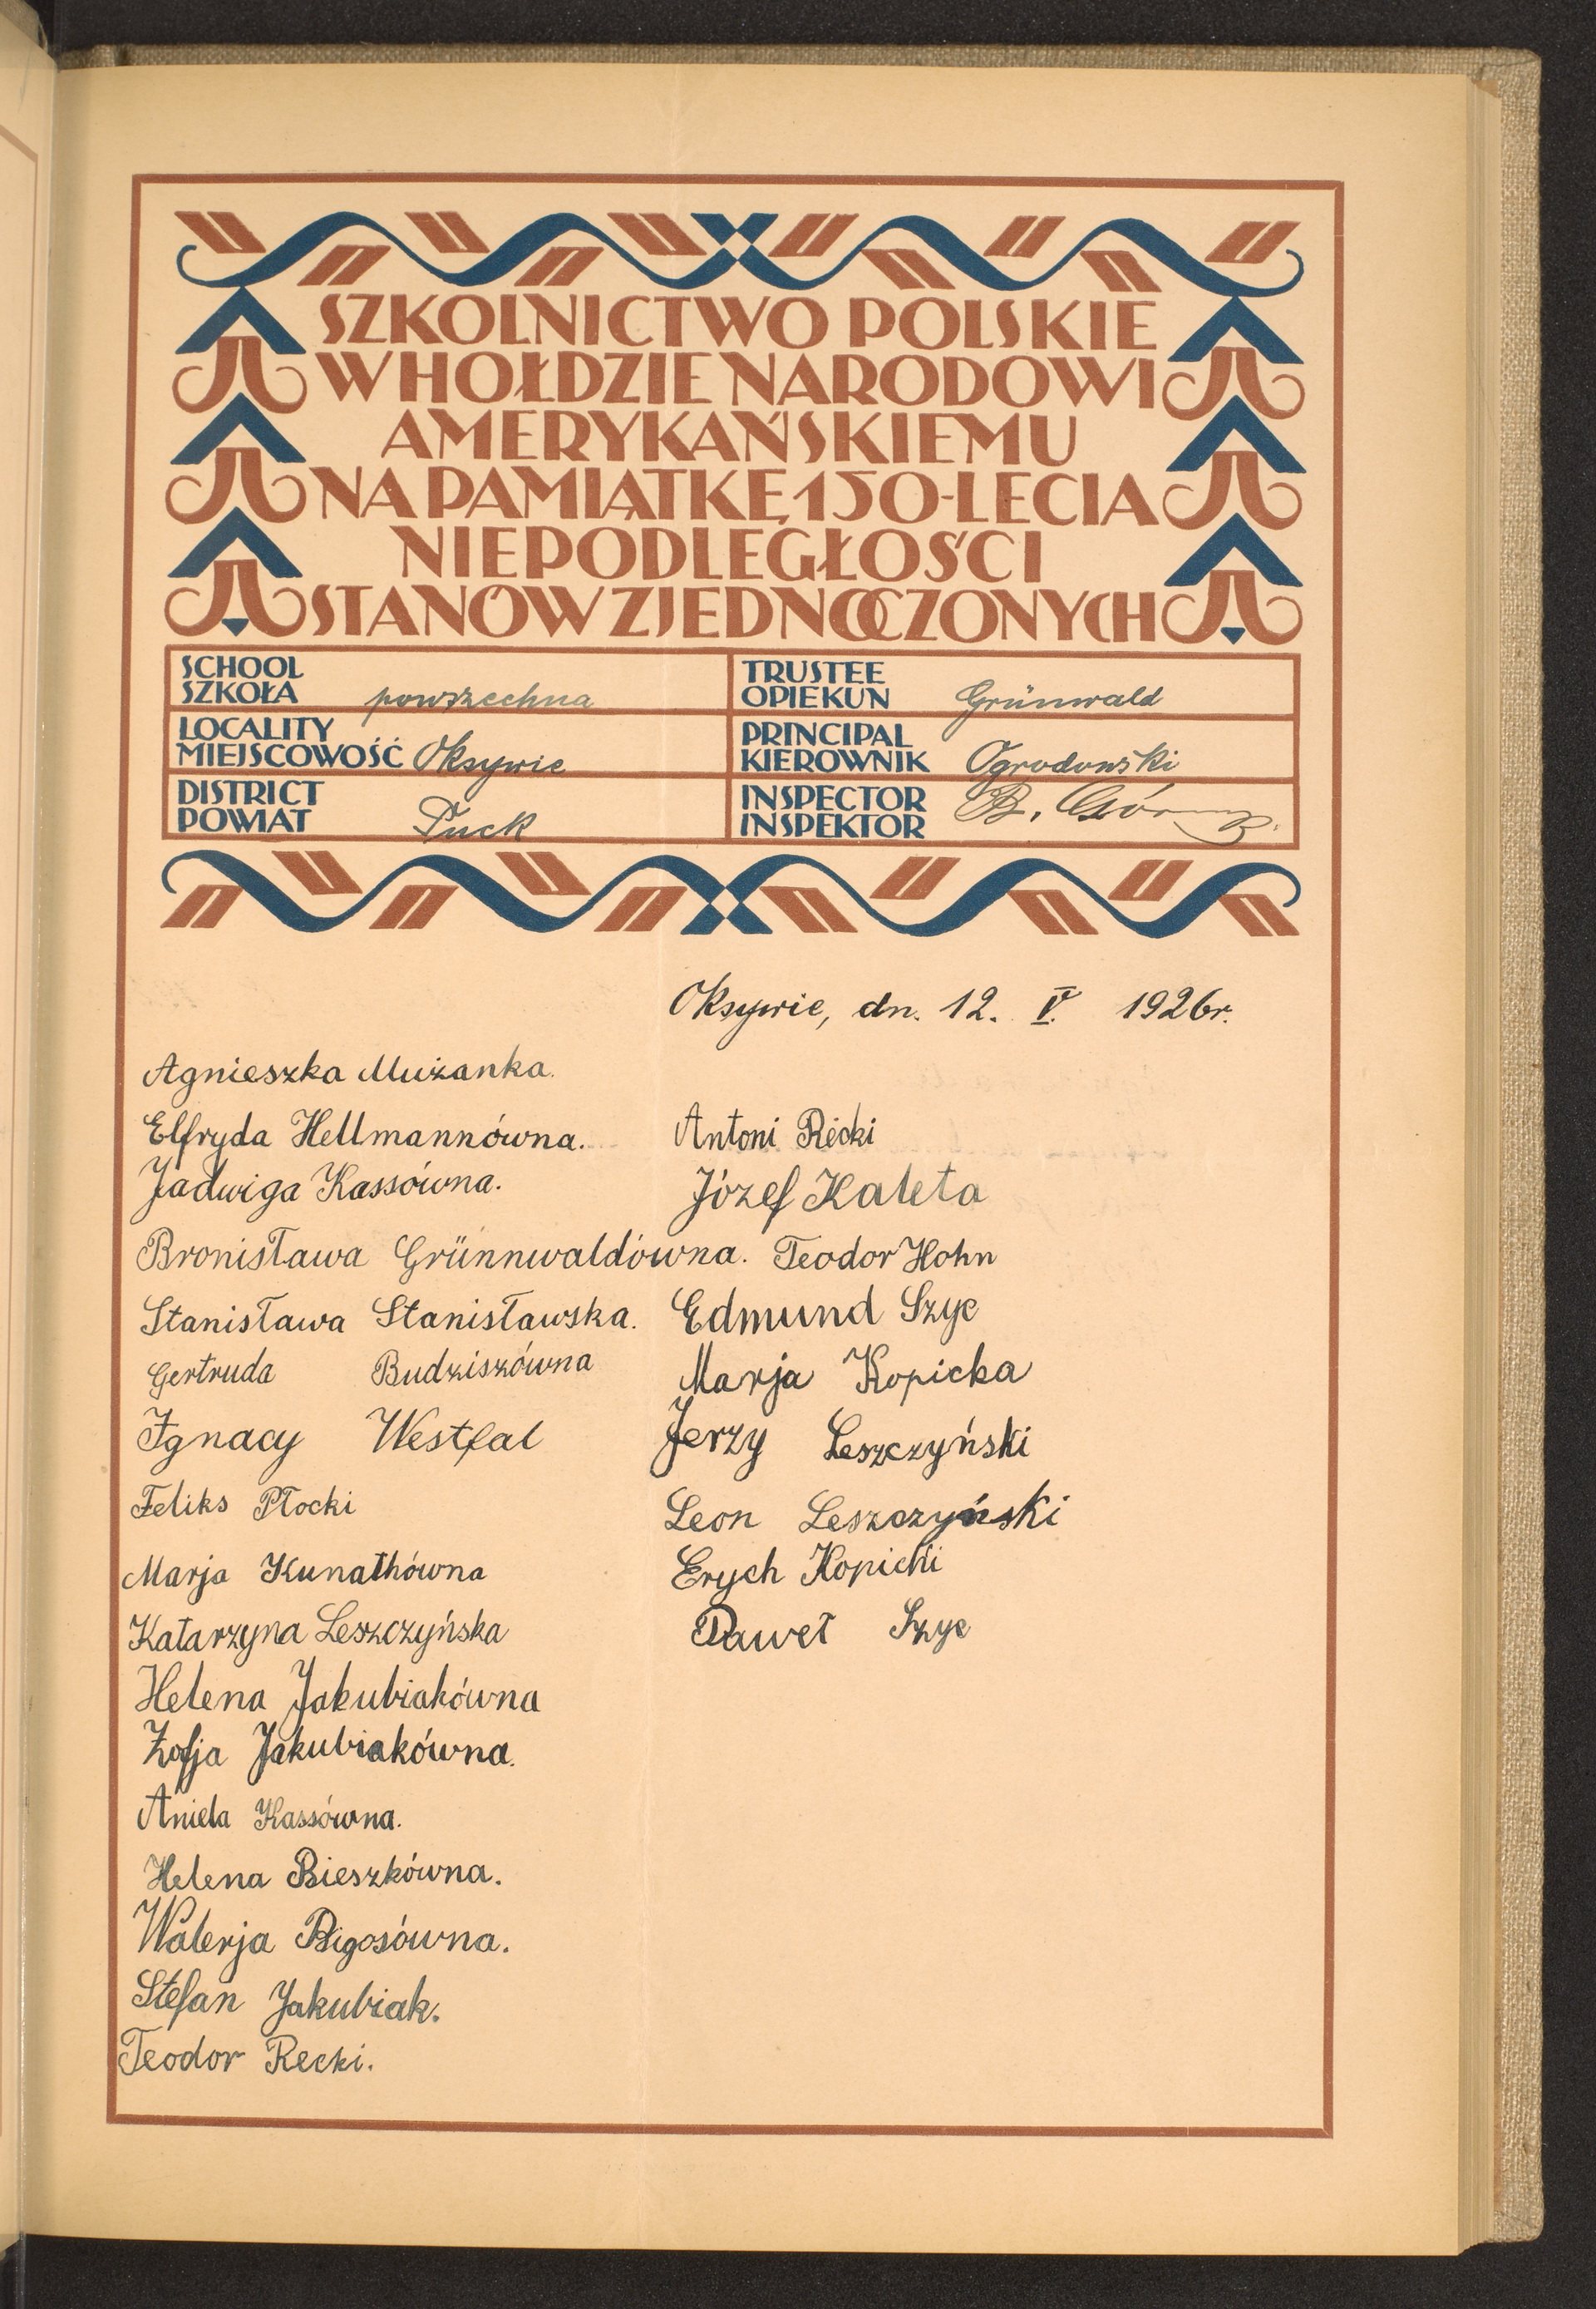 SZKOLNICTWO POLSKIE
W HOŁDZIE NARODOWI
AMERYKAŃSKIEMU
NA PAMIĄTKĘ 150-LECIA
NIEPODLEGŁOŚCI
STANÓW ZJEDNOCZONYCH
SCHOOL
SZKOŁA powszechna
TRUSTEE
OPIEKUN Grünwald
LOCALITY
MIEJSCOWOŚĆ Oksywie
PRINCIPAL
KIEROWNIK Ogrodowski
DISTRICT
POWIAT Puck
INSPECTOR
INSPEKTOR B.
Oksywie, dn. 12. V. 1926r.
Agnieszka Mużanka.
Elfryda Hellmannówna.
Jadwiga Kassówna.
Bronisława Grünnwaldówna.
Stanisława Stanisławska.
Gertruda Budziszówna
Ignacy Westfal
Feliks Płocki
Marja Kunathówna
Katarzyna Leszczyńska
Helena Jakubiakówna
Zofja Jakubiakówna.
Aniela Kassówna.
Helena Bieszkówna.
Walerja Bigosówna.
Stefan Jakubiak.
Teodor Recki.
Antoni Recki
Józef Kaleta
Teodor Hohn
Edmund Szyc
Marja Kopicka
Jerzy Leszczyński
Leon Leszczyński
Erych Kopicki
Paweł Szyc